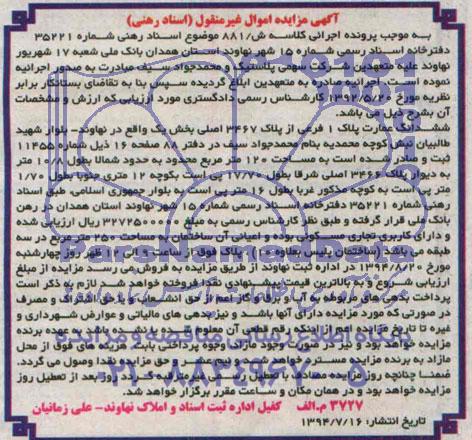 آگهی مزایده اموال غیرمنقول (اسناد رهنی)
به موجب پرونده اجرائی کلاسه ش/۸۸۱ موضوع اسناد رهنی شماره ۳۵۲۲۱
دفترخانه اسناد رسمی شماره ۱۵ شهر نهاوند استان همدان بانک ملی شعبه ۱۷ شهریور
نهاوند علیه متعهدین شرکت سومی پلاستیک و محمدجواد سیف مبادرت به صدور اجرائیه
نموده است اجرائیه صادره به متعهدین ابلاغ گردیده سپس بنا به تقاضای بستانکار برابر
نظریه مورخ ۱۳۹۴/۵/۲۰ کارشناس رسمی دادگستری مورد ارزیابی که ارزش و مشخصات
آن بشرح ذیل می باشد.
ششدانگ عمارت پلاک ۱ فرعی از پلاک ۳۴۶۷ اصلی بخش یک واقع در نهاوند- بلوار شهید
طالبیان نبش کوچه محمدیه بنام محمدجواد سیف در دفتر ۸۸ صفحه ۱۶ ذیل شماره ۱۱۴۵۵
ثبت و صادر شده است به مساحت ۱۲۰ متر مربع محدود به حدود شمالا بطول ۱۰/۸ متر
به دیوار پلاک ۳۴۶۶ اصلی شرقا بطول ۱۷/۷۰ پی است بکوچه ۱۲ متری جنوبا بطول ۱/۷۰
متر پی است به کوچه مذکور غربا بطول ۱۶ متر پی است به بلوار جمهوری اسلامی، طبق اسناد
رهنی شماره ۳۵۲۲۱ دفترخانه اسناد رسمی شماره ۱۵ شهر نهاوند استان همدان در رهن
بانک ملی قرار گرفته و طبق نظر کارشناس رسمی به مبلغ ریال ارزیابی شده
و دارای کاربری تجاری مسکونی بوده و اعیانی آن ساختمان به مساحت ۲۵۰ متر مربع در سه
طبقه می باشد (ساختمان پلیس بعلاوه ۱۰) پلاک فوق از ساعت ۹ الی ۱۲ ظهر روز چهارشنبه
مورخ ۱۳۹۴/۸/۲۰ در اداره ثبت نهاوند از طریق مزایده به فروش می رسد مزایده از مبلغ
ارزیابی شروع و به بالاترین قیمت پیشنهادی نقدا فروخته خواهد شد لازم به ذکر است
پرداخت بدهی های مربوطه به آب و برق و گاز اعم از حق انشعاب و یا حق اشتراک و مصرف
در صورتی که مورد مزایده دارای آنها باشد و نیز بدهی های مالیاتی و عوارض شهرداری و
غیره تا تاریخ مزایده اعم از اینکه رقم قطعی آن معلوم شده یا نشده باشد به عهده برنده
مزایده خواهد بود و نیز در صورت وجود مازاد وجوه پرداختی بابت هزینه های فوق از محل
مازاد به برنده مزایده مسترد خواهد شد و نیم عشر و حق مزایده نقدا وصول می گردد.
ضمنا چنانچه روز مزایده مصادف با تعطیل رسمی روز بعد از تعطیل روز
مزایده خواهد بود و در همان مکان و ساعت مقرر برگزار خواهد شد.
۳۷۲۷ م.الف کفیل اداره ثبت اسناد و املاک نهاوند- علی زمانیان
تاریخ انتشار: ۱۳۹۴/۷/۱۶